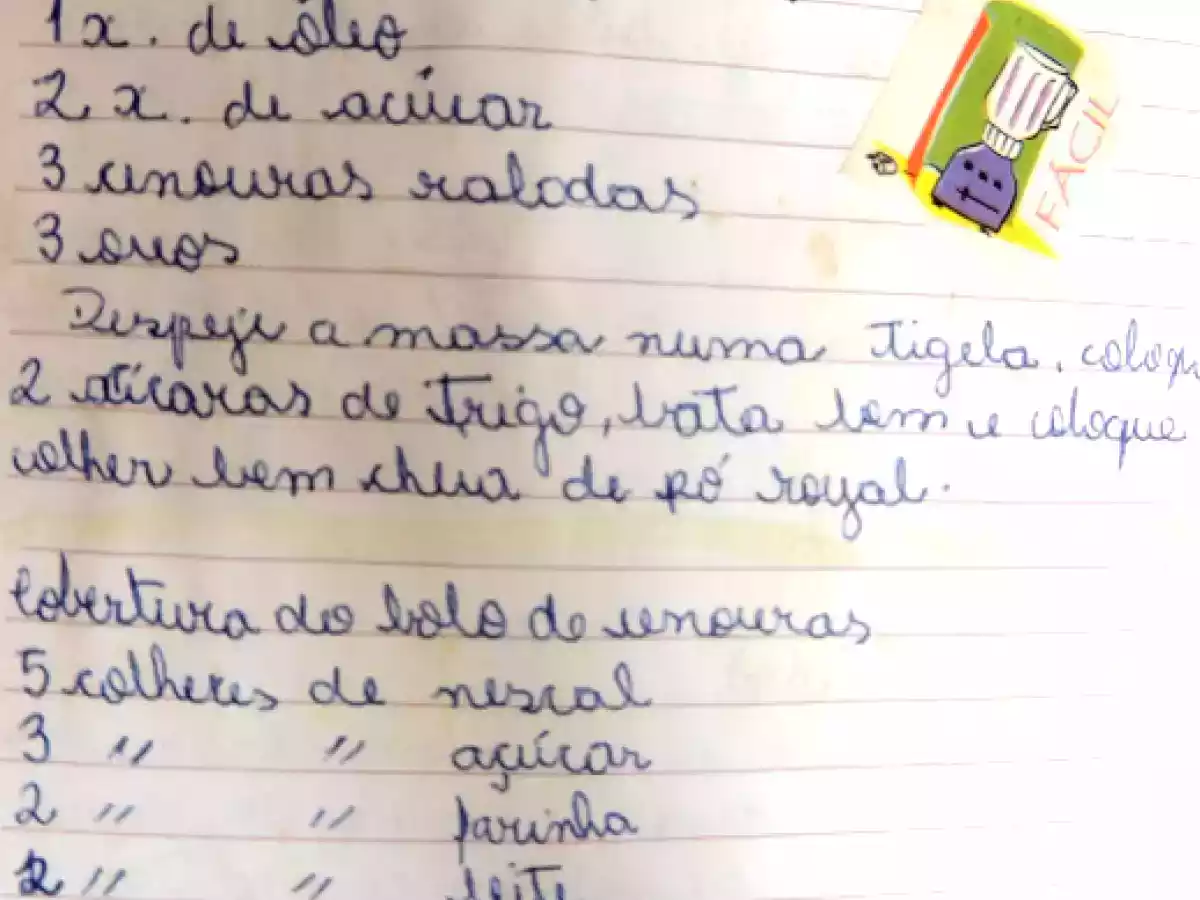 1 x. de óleo
2 x. de acúcar
3 cenouras raladas
3 ovos
FÁCIL
Despeje a massa numa tigela, coloqu
2 xícaras de trigo, bata bem e coloque
colher bem cheia de pó royal.
Cobertura do bolo de cenouras
5 colheres de nescal
3 " " açúcar
2 " " farinha
2 " " leite